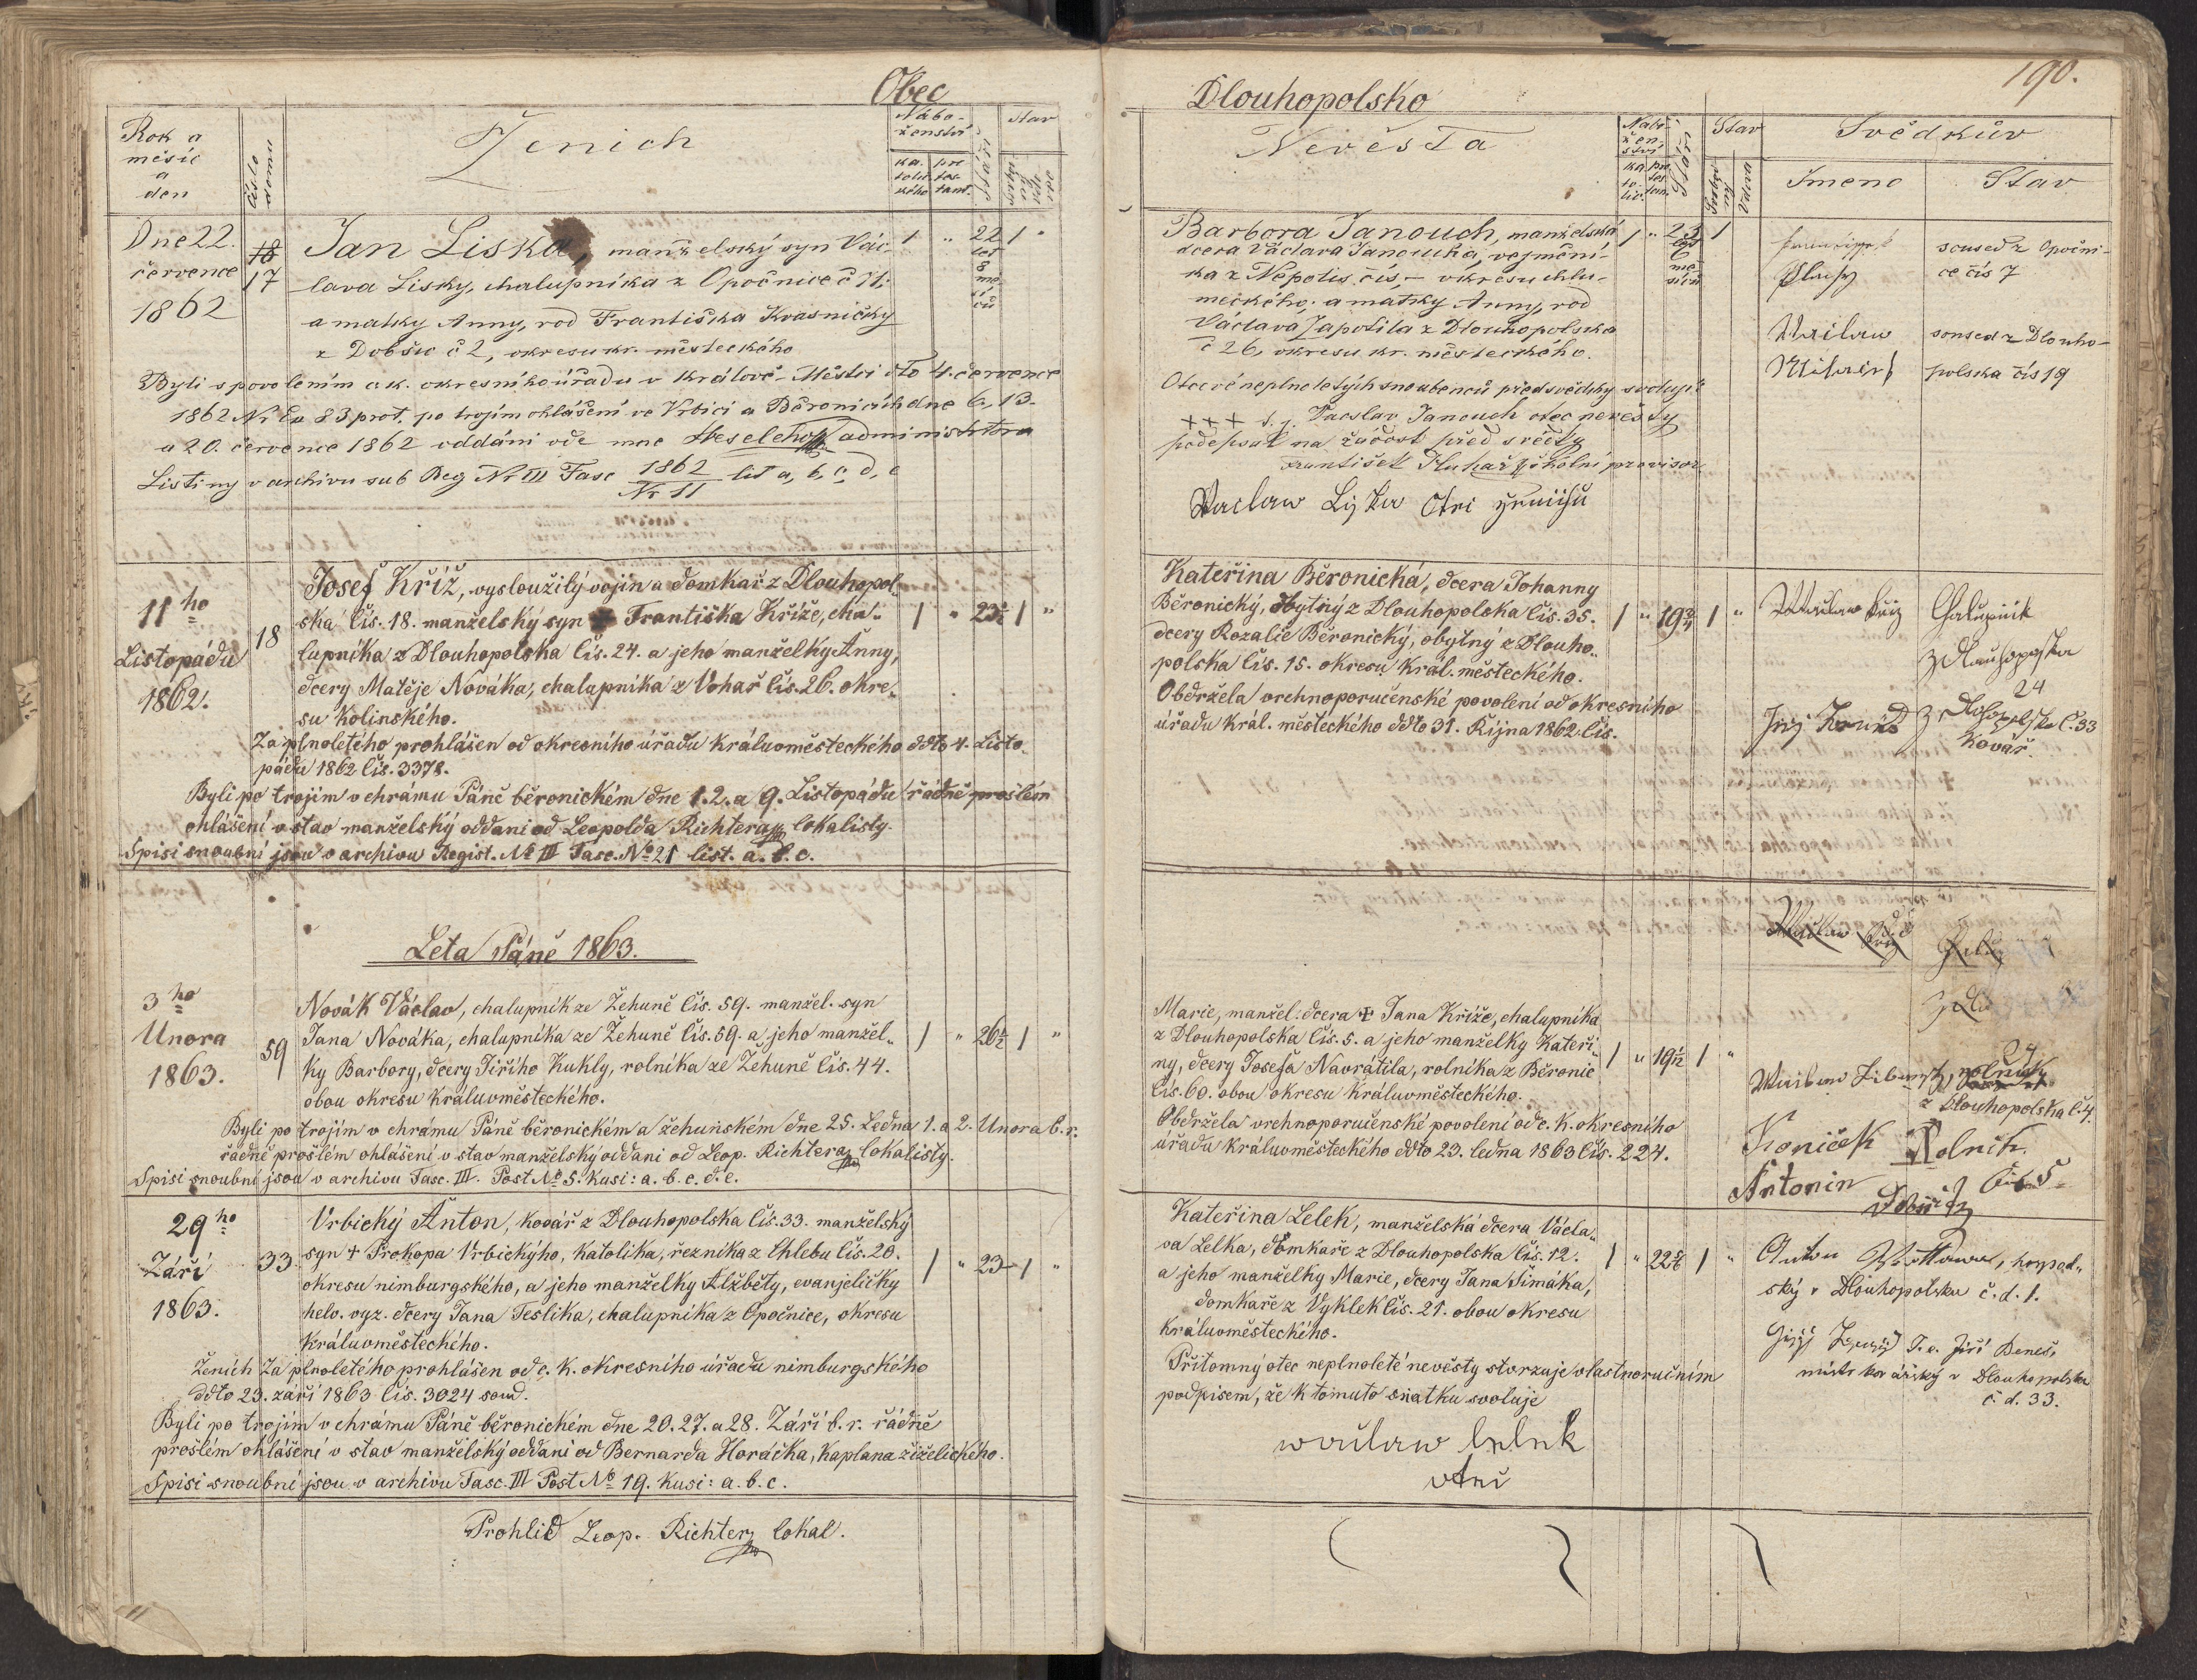 Obec
Rok a
měsíc
a
den
Číslo
domu
Ženich
Nábo-
ženství
ka-
tolic-
kého
pro
tes-
tant.
Stáří
Stav
Dne 22.
července
1862
18
17
Jan Liska, manželský syn Vác-
lava Lisky, chalupníka z Opočnice č 11.
a matky Anny, rod Františka Kvasničky
z Dobšic č 2, okresu kr. městeckého
1 " 22 let 8 mě sí ců 1 "
Byli s povolením c. k. okresního úřadu v Králové-Městci dto 4. července
1862 Nr Ex 83 prot. po trojím ohlášení ve Vrbici a Běronicích dne 6, 13.
a 20. července 1862 oddáni ode mne administrátora
Listiny v archivu sub Reg Nr III Fasc 1862 lit a, b, c, d, e
Nr 11
11ho
Listopádu
1862.
18
Josef Kříž, vysloužilý vojín a domkař z Dlouhopol-
ska čís. 18. manželský syn Františka Kříže, cha-
lupníka z Dlouhopolska čís. 24. a jeho manželky Anny,
dcery Matěje Nováka, chalupníka z Vohař čís. 26. okre-
su Kolinského.
1 " 23 1 "
Za plnoletého prohlášen od okresního úřadu Králuoměsteckého ddto 4. Listo-
pádu 1862 čís. 3378.
Byli po trojím v chrámu Páně běronickém dne 1. 2. a 9. Listopádu řádně prošlém
ohlášení v stav manželský oddani od Leopolda Richtera lokalisty.
Spisi snoubní jsou v archivu Regist. No III Fasc. No 21 list. a. b. c.
Leta Páně 1863.
3ho
Unora
1863.
59
Novák Václav, chalupník ze Žehuně čís. 59. manžel. syn
Jana Nováka, chalupníka ze Žehuně čís. 59. a jeho manžel-
ky Barbory, dcery Jiřího Kukly, rolníka ze Žehuně čís. 44.
obou okresu Králuoměsteckého.
1 " 26½ 1 "
Byli po trojím v chrámu Páně běronickém a žehuňském dne 25. Ledna 1. a 2. Unora b. r.
řádně prošlém ohlášení v stav manželský oddani od Leop. Richtera lokalisty.
Spisi snoubní jsou v archivu Fasc. III. Post No 5. kusi: a. b. c. d. e.
29ho
Září
1863.
33
Vrbický Anton, kovář z Dlouhopolska čís. 33. manželský
syn + Prokopa Vrbickýho, katolíka, řezníka z Chlebu čís. 20.
okresu nimburgského, a jeho manželky Alžběty, evanjeličky
helv. vyz. dcery Jana Teslíka, chalupníka z Opočnice, okresu
Králuoměsteckého.
1 " 23 1 "
Ženich za plnoletého prohlášen od c. k. okresního úřadu nimburgského
ddto 23. září 1863 čís. 3024 soud.
Byli po trojím v chrámu Páně běronickém dne 20. 27. a 28. Září b. r. řádně
prošlém ohlášení v stav manželský oddani od Bernarda Horáčka, kaplana žiželického.
Spisi snoubní jsou v archivu Fasc. III Post No 19. kusi: a. b. c.
Prohlid Leop. Richter lokal.
190.
Dlouhopolsko
Nevěsta
Nábo-
žen-
ství
ka
to-
lic.
pro
tes
tan.
Stáří
Stav
Svobo
ný
Vdova
Svědkův
Jmeno
Stav
Barbora Janouch, manželská
dcera Václava Janoucha, vejmění-
ka z Nepolis čís, – okresu chlu-
meckého, a matky Anny, rod
Václava Zapotila z Dlouhopolska
č 26, okresu kr. městeckého.
1 " 23 let 6 mě síců 1
soused z Opočni-
ce čís 7
Waclaw
soused z Dlouho-
polska čís 19
Otcové neplnoletých snoubenců před svědky svolují:
+++ t. j. Vacslav Janouch otec nevěsty
podepsal na žádost před svědky
František Pluhař školní provisor
Waclaw Liska Otec ženicha
Kateřina Běronická, dcera Johanny
Běronický, obytný z Dlouhopolska čís. 35.
dcery Rozalie Běronický, obytný z Dlouho-
polska čís. 15. okresu král. městeckého.
Obdržela vrchnoporučenské povolení od okresního
úřadu král. městeckého ddto 31. Října 1862 čís.
1 " 19¾ 1 "
Waclaw Křiz
Chalupnik
24
Kovář
č. 33
Waclaw Křiz
Marie, manžel. dcera + Jana Kříže, chalupníka
z Dlouhopolska čís. 5. a jeho manželky Kateři-
ny, dcery Josefa Navrátila, rolníka z Běronic
čís. 60. obou okresu Králuoměsteckého.
Obdržela vrchnoporučenské povolení od c. k. okresního
úřadu králuoměsteckého ddto 23. ledna 1863 čís. 224.
1 " 19 1 "
z Dlouhopolska č. 4.
Koniček
Antonin
Rolnik
čís 5
Kateřina Lelek, manželská dcera Václa-
va Lelka, domkaře z Dlouhopolska čís. 12.
a jeho manželky Marie, dcery Jana Šimáka,
domkaře z Vyklek čís. 21. obou okresu
Králuoměsteckého.
1 " 22 1 "
Přítomný otec neplnoleté nevěsty stvrzuje vlastnoručním
podpisem, že k tomuto sňatku svoluje
waclaw lelek
otec
Anton
ský v Dlouhopolsku č. d. 1.
T. e. Jiří Beneš
mistr kovářský v Dlouhopolsku
č d. 33.